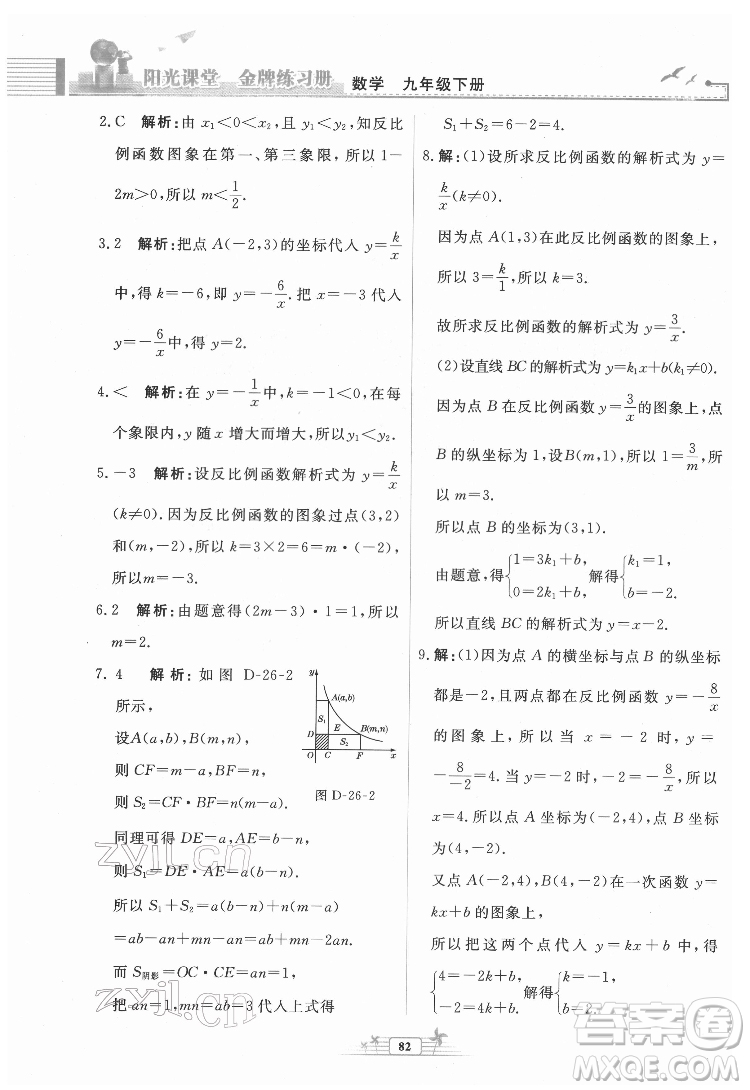 阳光课堂 金牌练习册 数学 九年级下册
2.C 解析:由 x₁<0<x₂,且 y₁<y₂,知反比
例函数图象在第一、第三象限,所以 1-
2m>0,所以 m<1/2.
3.2 解析:把点 A(-2,3)的坐标代入 y=k/x
中,得 k=-6,即 y=-6/x.把 x=-3 代入
y=-6/x中,得 y=2.
4.< 解析:在 y=-1/x中,k=-1<0,在每
个象限内,y 随 x 增大而增大,所以y₁<y₂.
5.-3 解析:设反比例函数解析式为 y=k/x
(k≠0).因为反比例函数的图象过点(3,2)
和(m,-2),所以 k=3×2=6=m·(-2),
所以m=-3.
6.2 解析:由题意得(2m-3)·1=1,所以
m=2.
7.4 解析:如图 D-26-2
所示,
设A(a,b),B(m,n),
则 CF=m-a,BF=n,
则 S₂=CF·BF=n(m-a).
同理可得 DE=a,AE=b-n,
则 S₁=DE·AE=a(b-n).
所以 S₁+S₂=a(b-n)+n(m-a)
=ab-an+mn-an=ab+mn-2an.
而 S阴影=OC·CE=an=1,
把 an=1,mn=ab=3代入上式得
y
A(a,b)
S₁
D E B(m,n)
S₂
O C F x
图 D-26-2
S₁+S₂=6-2=4.
8.解:(1)设所求反比例函数的解析式为 y=
k/x(k≠0).
因为点 A(1,3)在此反比例函数的图象上,
所以 3=k/1,所以 k=3.
故所求反比例函数的解析式为 y=3/x.
(2)设直线 BC的解析式为 y=k₁x+b(k₁≠0).
因为点 B在反比例函数 y=3/x的图象上,点
B 的纵坐标为 1,设 B(m,1),所以 1=3/m,所
以 m=3.
所以点 B 的坐标为(3,1).
由题意,得{1=3k₁+b,0=2k₁+b,解得{k₁=1,b=-2.
所以直线 BC 的解析式为 y=x-2.
9.解:(1)因为点 A 的横坐标与点 B 的纵坐标
都是-2,且两点都在反比例函数 y=-8/x
的图象上,所以当 x=-2 时,y=
-8/-2=4.当 y=-2时,-2=-8/x,所以
x=4.所以点 A 坐标为(-2,4),点 B 坐标
为(4,-2).
又点 A(-2,4),B(4,-2)在一次函数 y=
kx+b 的图象上,
所以把这两个点代入 y=kx+b,得
{4=-2k+b,-2=4k+b,解得{k=-1,b=2.
82
zyjl.cn
zyjl.cn
答案圈
MXQE.COM